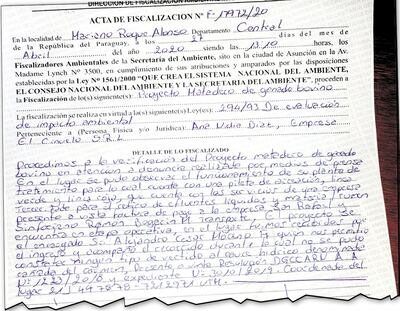 DIRECCION DE FISCALIZACION
ACTA DE FISCALIZACION N° F-1972/20
En la localidad de Mariano Roque Alonso, Departamento Central
de la República del Paraguay, a los días del mes de
Abril del año 2020 siendo las 13:10 horas, los
Fiscalizadores Ambientales de la Secretaría del Ambiente, sito en la ciudad de Asunción en la Av.
Madame Lynch N° 3500, en cumplimiento de sus atribuciones y amparado por las disposiciones
establecidas por la Ley N° 1561/2000 "QUE CREA EL SISTEMA NACIONAL DEL AMBIENTE,
EL CONSEJO NACIONAL DEL AMBIENTE Y LA SECRETARIA DEL AMBIENTE", proceden a
la Fiscalización de lo(s) siguiente(s): Proyecto Matadero de ganado bovino
La fiscalización se realiza en virtud a la(s) siguiente(s) Ley(es): 294/93 De evaluación
de impacto ambiental
Perteneciente a (Persona Física y/o Jurídica): Ana Lidia Diaz, Empresa
El Cinuelo S.R.L
DETALLE DE LO FISCALIZADO
Procedimos a la verificación del Proyecto matadero de ganado
bovino en atención a denuncia realizada por medios de prensa
En el lugar se pudo observar el funcionamiento de su planta de
tratamiento para lo cual cuenta con una pileta de aireación, línea
verde y línea roja, que cuenta con los servicios de una empresa
para el retiro de efluentes líquidos y materia ruran
presento a vista factura de pago a la empresa San Rafael y
Sinforiano Ramón Transporte. El proyecto se
encuentra en etapa operativa, en el lugar fuimos recibidos por
el encargado Sr Alejandro Cesar Molinas quien nos permitio
el ingreso y acompaño el recorrido durante la cual no se pudo
constatar ningún tipo de vertido al cauce hídrico denominado
cañada del carmen, Presento a vista Resolución DGCCARN A.A
N° 1225/2018 y expediente N° 3010/2019. Coordenada del
lugar 21J 447878 - 7212971 UTM.